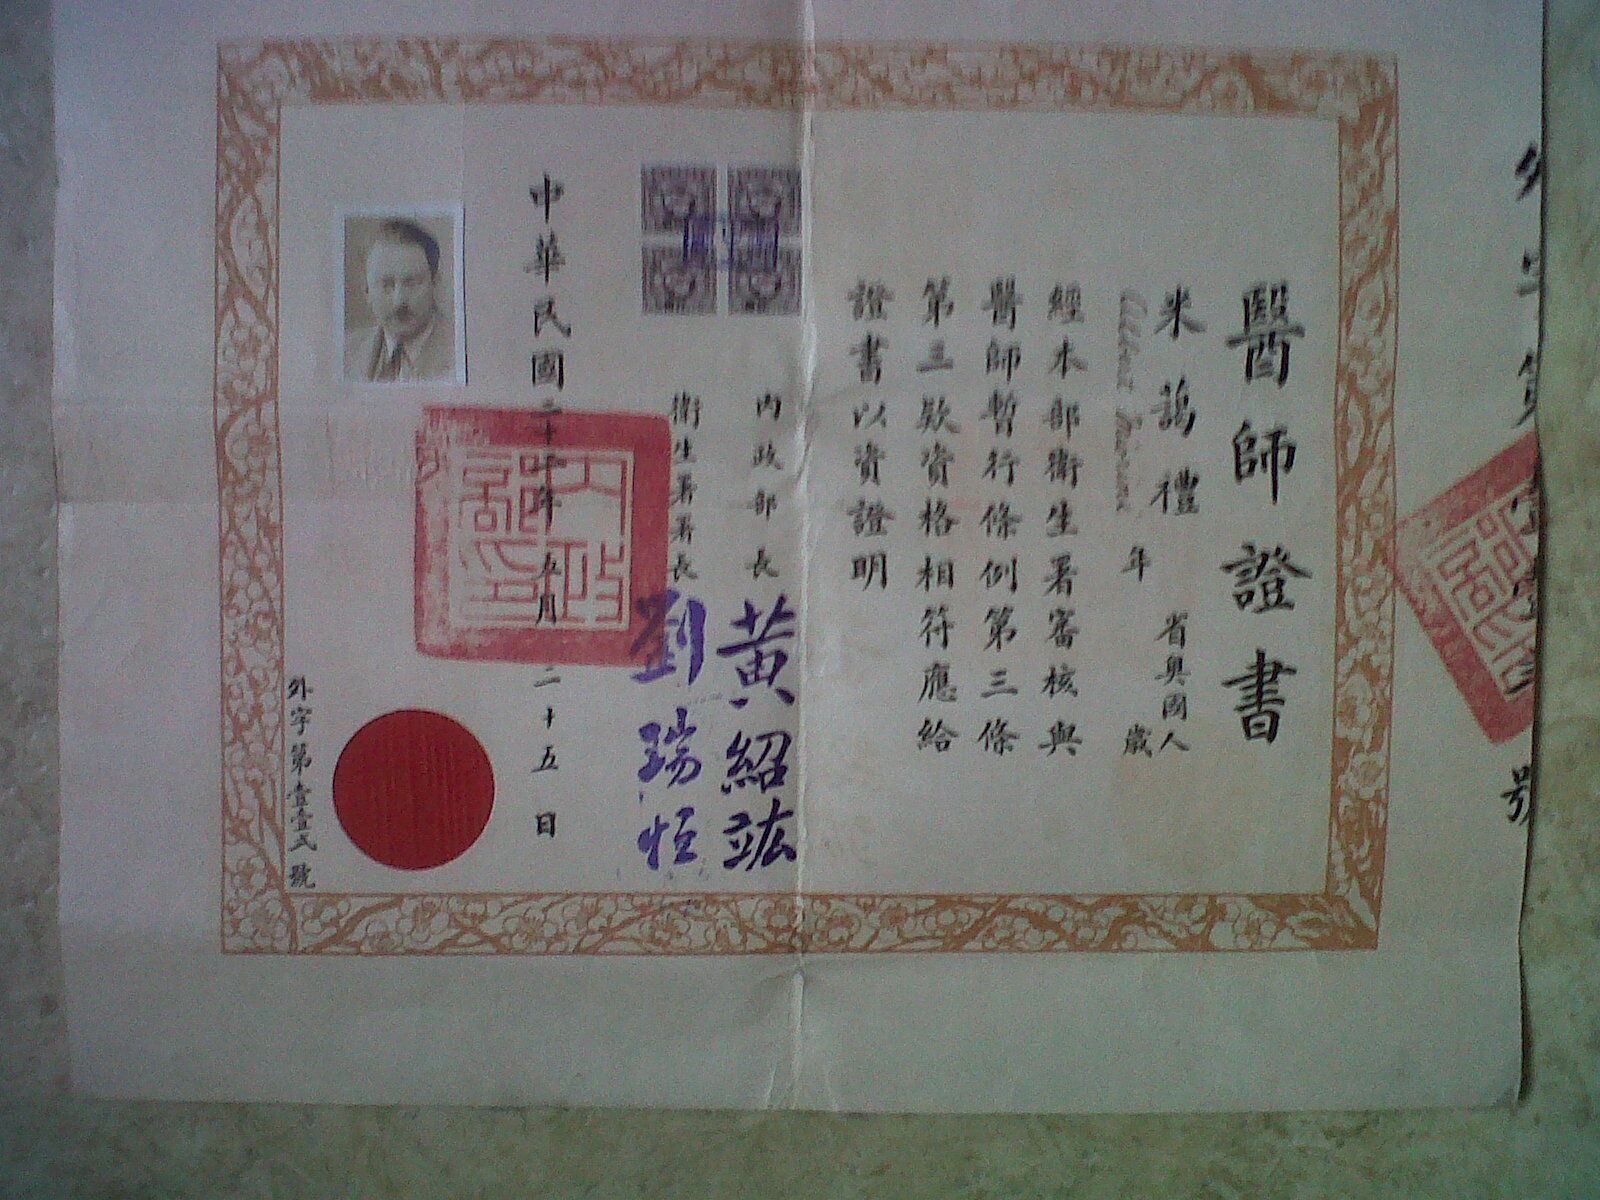 號
醫師證書
米藹禮 省奧國人
年 歲
經本部衛生署審核與
醫師暫行條例第三條
第三款資格相符應給
證書以資證明
內政部長 黃紹竑
衛生署署長 劉瑞恒
中華民國二十二年五月二十五日
內政部印
外字第壹壹弍號